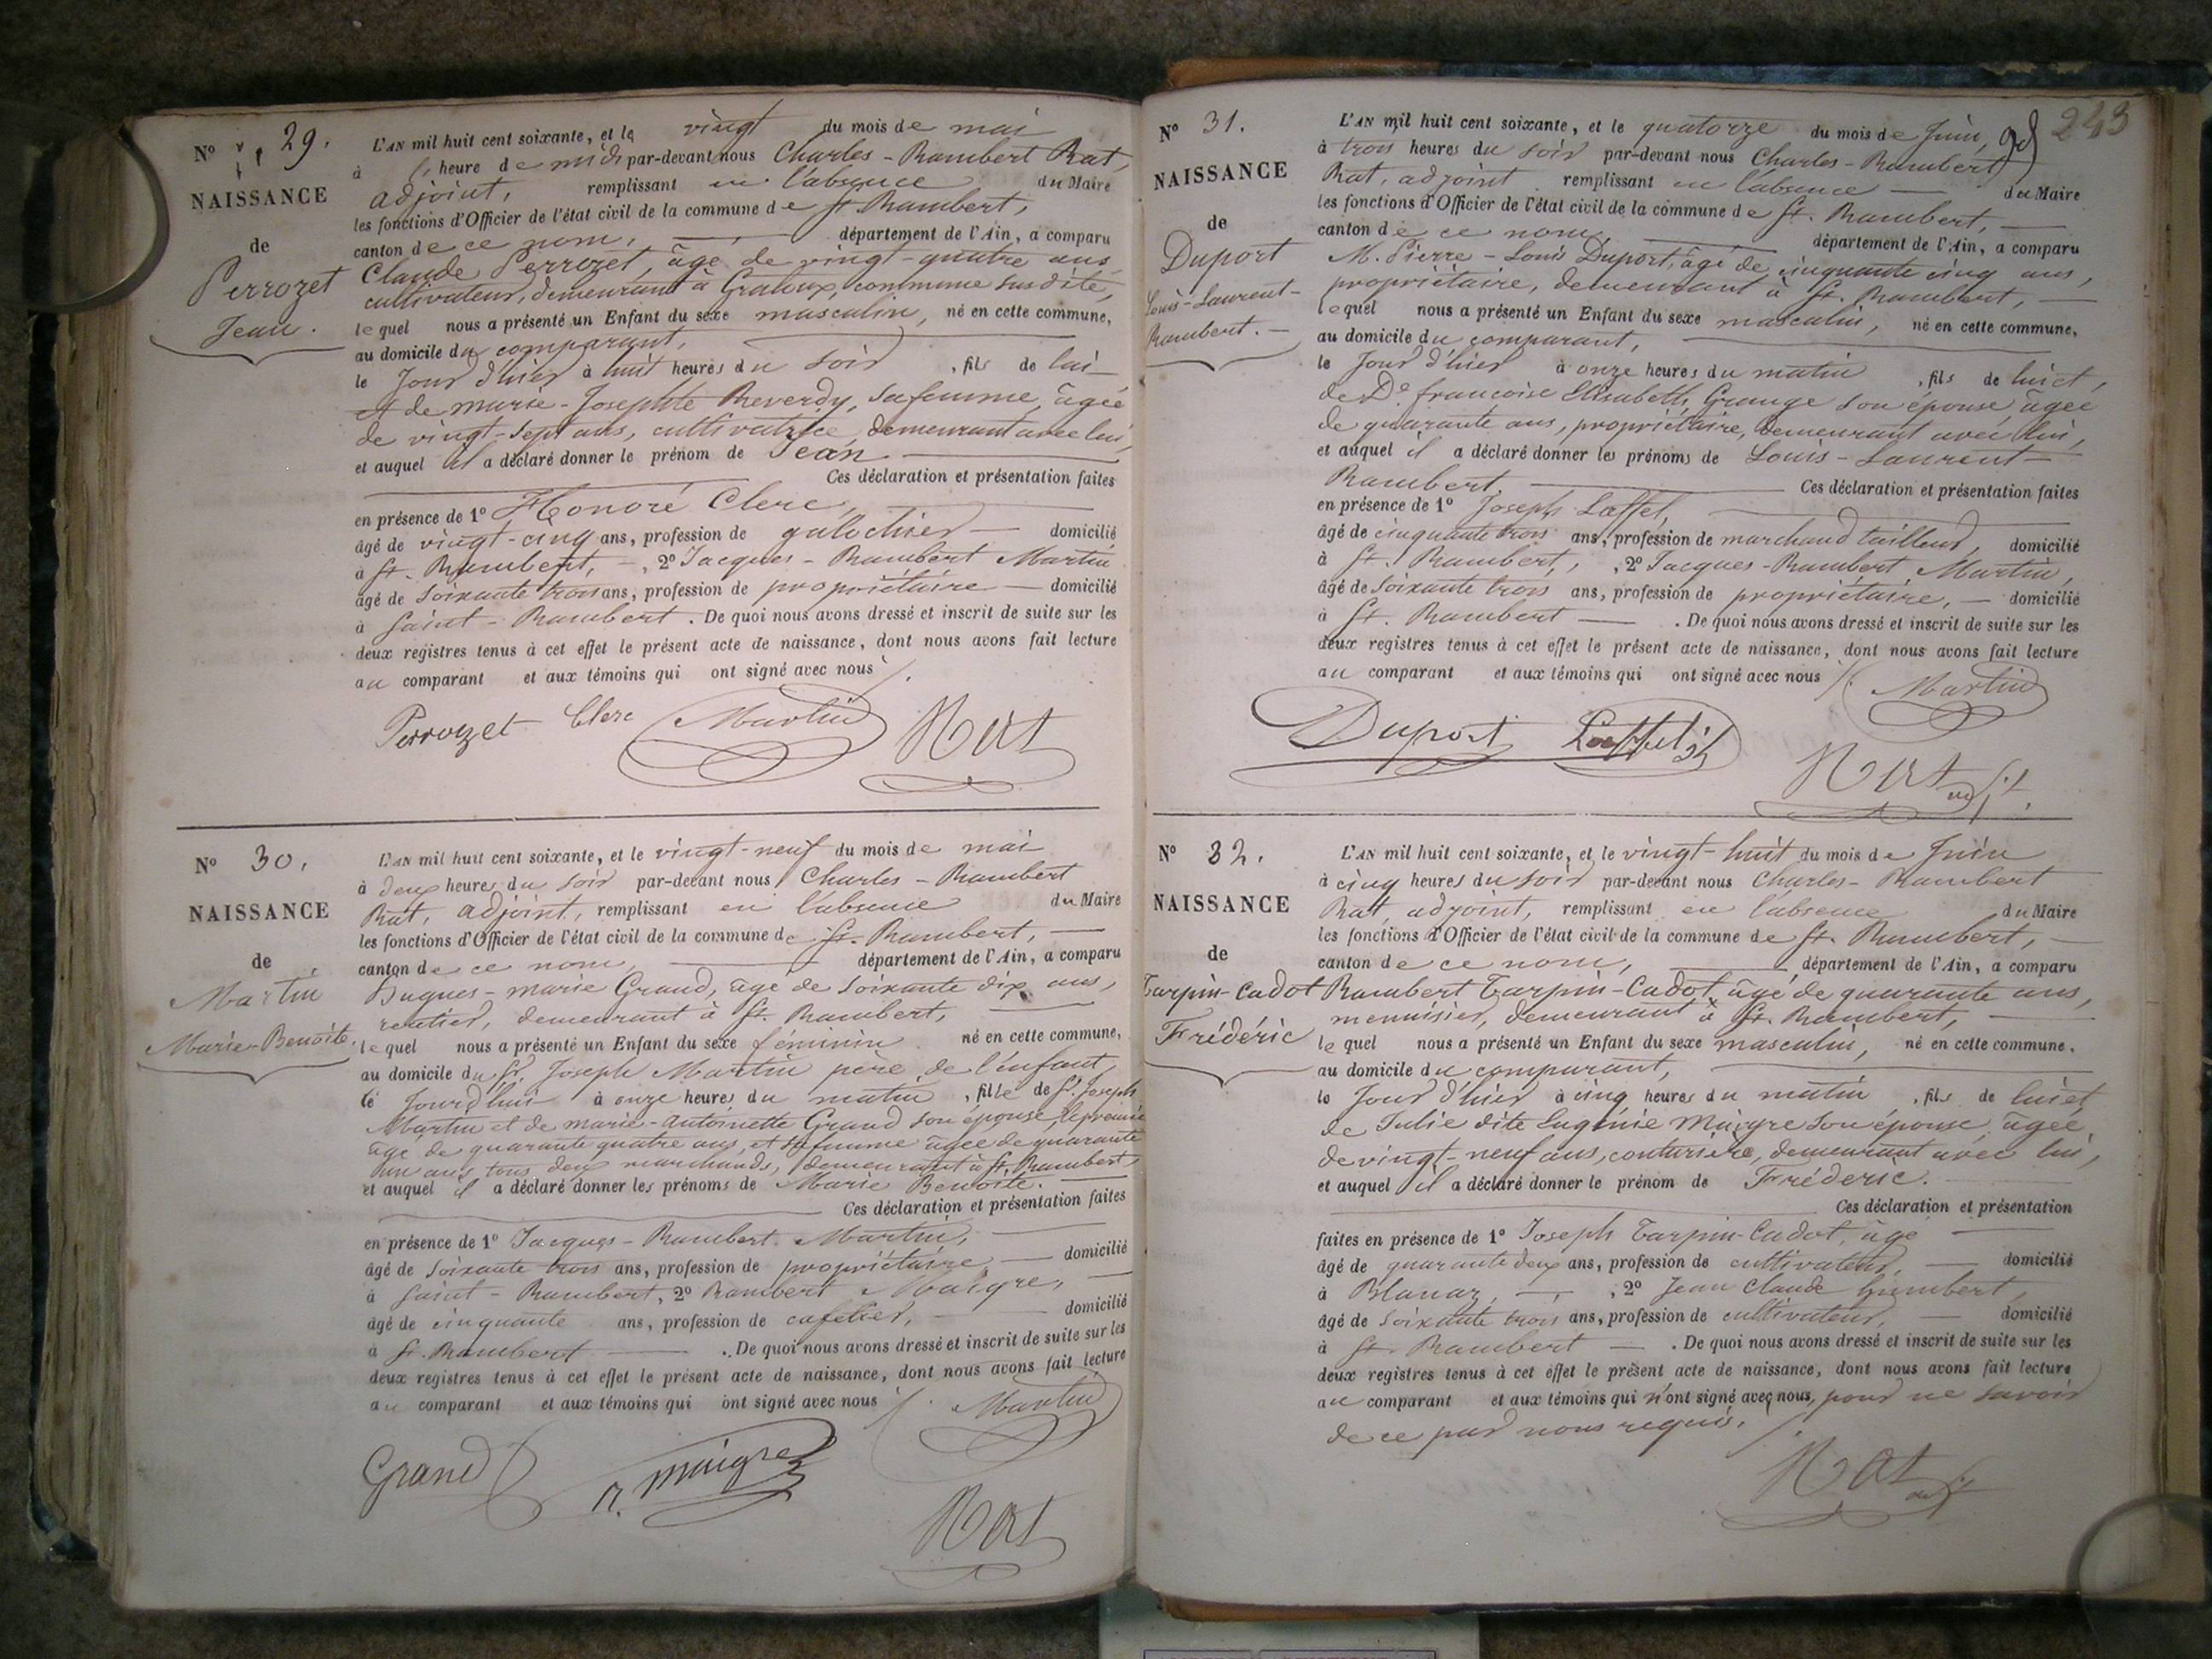 N° 29.
NAISSANCE
de
Perrozet
Jean.
L'AN mil huit cent soixante, et le vingt du mois de mai
à l'heure de midi par-devant nous Charles-Rambert Rat,
adjoint, remplissant en l'absence du Maire
les fonctions d'Officier de l'état civil de la commune de St. Rambert,
canton de ce nom, département de l'Ain, a comparu
Claude Perrozet, âgé de vingt-quatre ans
cultivateur, demeurant à Graloux, commune susdite,
lequel nous a présenté un Enfant du sexe masculin, né en cette commune,
au domicile du comparant,
le jour d'hier à huit heures du soir, fils de lui
et de marie-Josephte Reverdy, sa femme, âgée
de vingt-sept ans, cultivatrice, demeurant avec lui,
et auquel il a déclaré donner le prénom de Jean
Ces déclaration et présentation faites
en présence de 1° Honoré Clerc,
âgé de vingt-cinq ans, profession de galochier domicilié
à St. Rambert, 2° Jacques-Rambert Martin
âgé de soixante trois ans, profession de propriétaire domicilié
à Saint-Rambert. De quoi nous avons dressé et inscrit de suite sur les
deux registres tenus à cet effet le présent acte de naissance, dont nous avons fait lecture
au comparant et aux témoins qui ont signé avec nous.
Perrozet Clerc Martin Rat
N° 30.
NAISSANCE
de
Martin
Marie-Benoite.
L'AN mil huit cent soixante, et le vingt-neuf du mois de mai
à deux heures du soir par-devant nous Charles-Rambert
Rat, adjoint, remplissant en l'absence du Maire
les fonctions d'Officier de l'état civil de la commune de St. Rambert,
canton de ce nom, département de l'Ain, a comparu
Hugues-marie Grand, âgé de soixante dix ans,
rentier, demeurant à St. Rambert,
lequel nous a présenté un Enfant du sexe féminin né en cette commune,
au domicile du Sr. Joseph Martin père de l'enfant,
le jourd'hui à onze heures du matin, fille de Sr. Joseph
Martin et de marie-Antoinette Grand son épouse, le premier
âgé de quarante quatre ans, et sa femme âgée de quarante
un ans tous deux marchands, demeurant à St. Rambert,
et auquel il a déclaré donner les prénoms de Marie Benoite.
Ces déclaration et présentation faites
en présence de 1° Jacques-Rambert Martin,
âgé de soixante trois ans, profession de propriétaire domicilié
à Saint-Rambert, 2° Rambert Maigre,
âgé de cinquante ans, profession de cafetier, domicilié
à St. Rambert. De quoi nous avons dressé et inscrit de suite sur les
deux registres tenus à cet effet le présent acte de naissance, dont nous avons fait lecture
au comparant et aux témoins qui ont signé avec nous. Martin
Grand R. Maigre
Rat
243
N° 31.
NAISSANCE
de
Duport
Louis-Laurent-
Rambert.
L'AN mil huit cent soixante, et le quatorze du mois de Juin,
à trois heures du soir par-devant nous Charles-Rambert
Rat, adjoint remplissant en l'absence du Maire
les fonctions d'Officier de l'état civil de la commune de St. Rambert,
canton de ce nom, département de l'Ain, a comparu
M. Pierre-Louis Duport, âgé de cinquante cinq ans,
propriétaire, demeurant à St. Rambert,
lequel nous a présenté un Enfant du sexe masculin, né en cette commune,
au domicile du comparant,
le jour d'hier à onze heures du matin, fils de lui et,
de De. francoise Elisabeth Grange son épouse, âgée
de quarante ans, propriétaire, demeurant avec lui,
et auquel il a déclaré donner les prénoms de Louis-Laurent-
Rambert. Ces déclaration et présentation faites
en présence de 1° Joseph Laffel,
âgé de cinquante trois ans, profession de marchand tailleur, domicilié
à St. Rambert, 2° Jacques-Rambert Martin,
âgé de soixante trois ans, profession de propriétaire, domicilié
à St. Rambert. De quoi nous avons dressé et inscrit de suite sur les
deux registres tenus à cet effet le présent acte de naissance, dont nous avons fait lecture
au comparant et aux témoins qui ont signé acec nous. Martin
Duport
Rat adjt.
N° 32.
NAISSANCE
de
Tarpin-Cadot
Frédéric
L'AN mil huit cent soixante, et le vingt-huit du mois de Juin
à cinq heures du soir par-devant nous Charles-Rambert
Rat, adjoint, remplissant en l'absence du Maire
les fonctions d'Officier de l'état civil de la commune de St. Rambert,
canton de ce nom, département de l'Ain, a comparu
Rambert Tarpin-Cadot, âgé de quarante ans,
menuisier, demeurant à St. Rambert,
lequel nous a présenté un Enfant du sexe masculin, né en cette commune,
au domicile du comparant,
le jour d'hier à cinq heures du matin, fils de lui et,
de Julie dite Eugénie Maigre son épouse, âgée
de vingt-neuf ans, couturière, demeurant avec lui,
et auquel il a déclaré donner le prénom de Fréderic.
Ces déclaration et présentation
faites en présence de 1° Joseph Tarpin-Cadot, âgé
âgé de quarante deux ans, profession de cultivateur, domicilié
à Blanaz, 2° Jean Claude Humbert,
âgé de soixante trois ans, profession de cultivateur, domicilié
à St. Rambert. De quoi nous avons dressé et inscrit de suite sur les
deux registres tenus à cet effet le présent acte de naissance, dont nous avons fait lecture
au comparant et aux témoins qui n'ont signé avec nous, pour ne savoir
de ce par nous requis.
Rat adjt